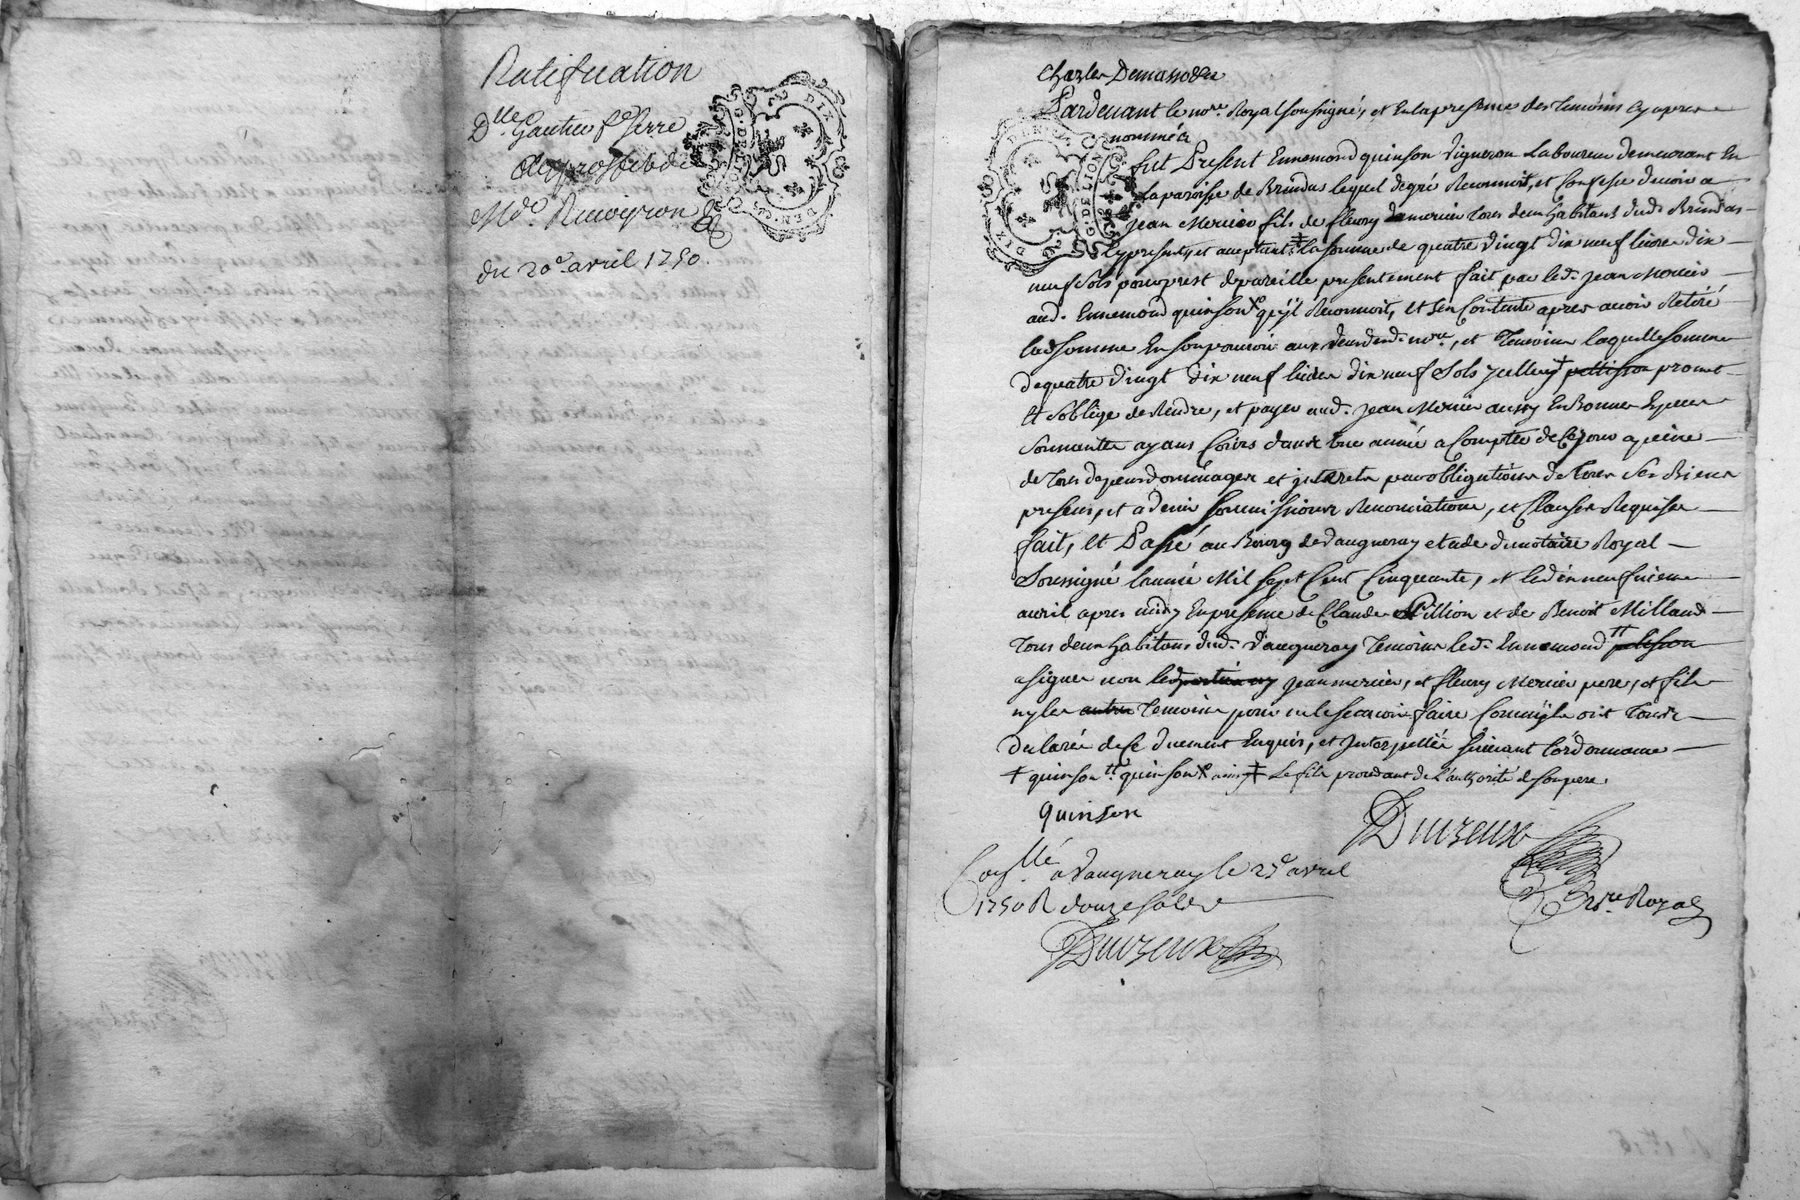 Ratification
D.lle Gautier f.e Serre
au proffit de
M.de Ruveyron
du 20e. avril 1750.
DIX DEN.
G. DE LION
Charles Demassocte
Pardevant le no.re Royal soussigné, et en la presence des temoins cy apres
nommés
fut Present Ennemond quinson vigneron Laboureur demeurant En
la paroisse de Brindas lequel de gré Reconnoit, et confesse devoir a
jean Mercier fils de fleury mercier tous deux habitants dud. Brindas
cy presents, et acceptants ‡ la somme de quatre vingt dix neuf livres dix
neuf sols pour prest de pareille presentement fait par led. jean Mercier
aud. Ennemond quinson x qu'jl Reconnoit, et s'en Contente apres avoir Retiré
lad somme En son pouvoir aux veües dud. no.re, et temoins laquelle somme
de quatre vingt dix neuf livres dix neuf sols jcelluy † pellisson promet
et s'oblige de Rendre, et payer aud. jean Mercier aussy En Bonnes Especes
sonnantes ayans Cours dans une année a Compter de Ce jour a peine
de tous depens dommages et jnterets par obligations de tous ses Biens
presens, et a venir soumissions Renonciations, et Clauses Requises
fait, Et Passé au Bourg de vaugneray etude du notaire Royal
Soussigné l'année Mil sept Cent Cinquante, et le dix neufvieme
avril apres midy En presence de Claude Pillion et de Benoit Milland
tous deux habitans dud. vaugneray temoins led. Ennemond †† pelisson
a signé non led parties ny jean mercier, et fleury Mercier pere, et fils
ny les autres temoins pour ne le scavoir faire Comm'jls ont tous
declaré de Ce duement Enquis, et Interpellés suivant l'ordonnance
† quinson †† quinson x ainsy ‡ Le fils procedant de L'authorité de son pere.
quinson
Duvzeux
n.re Royal
Con.llé a vaugneray le 27e avril
1750 R douze sols
Duvzeux